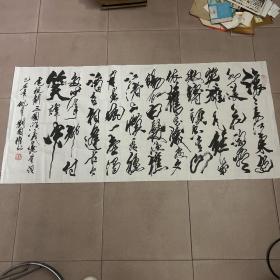 滚滚长江东逝
水浪花淘尽
英雄是非成败
转头空青山
依旧在几度夕
阳红白发渔樵
江渚上惯看秋月
春风一壶浊
酒喜相逢古今
多少事都付
笑谈中
电视剧三国演义